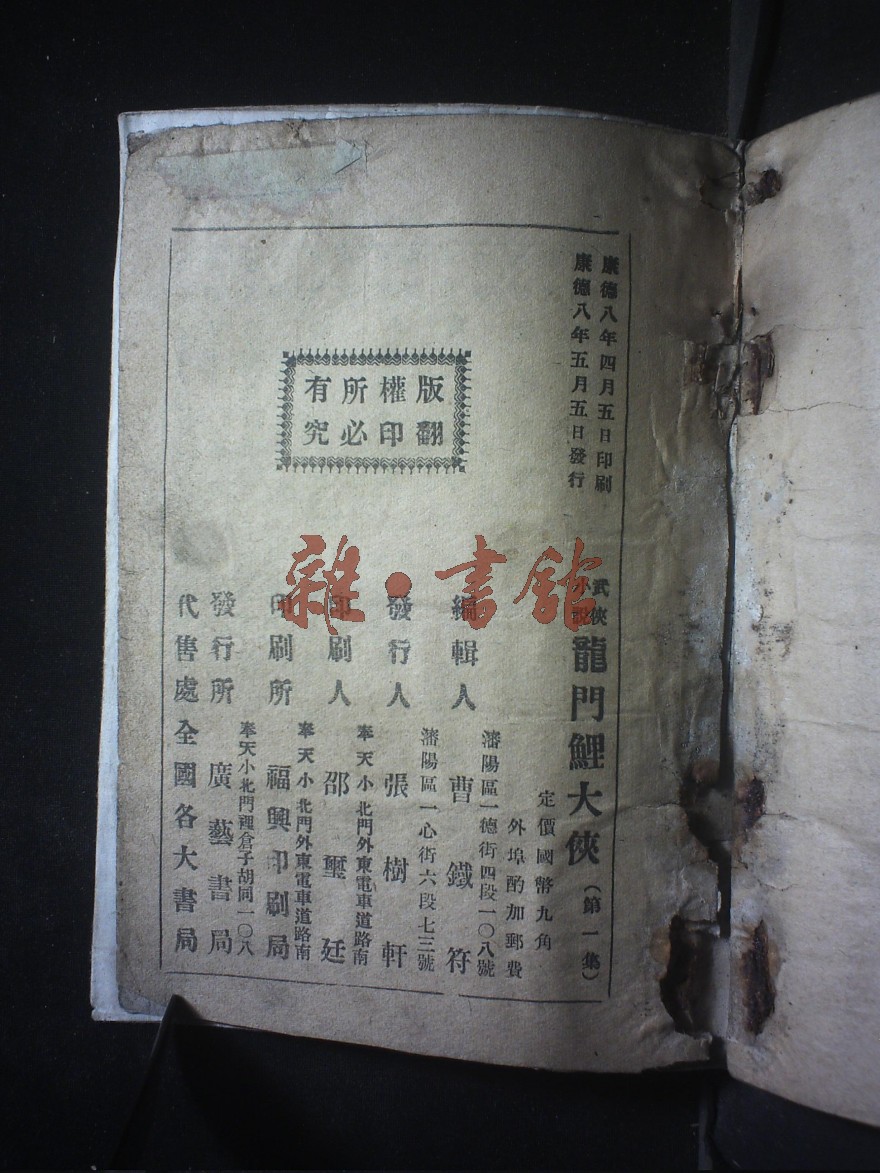 康德八年四月五日印刷
康德八年五月五日發行
武俠小說 龍門鯉大俠（第一集）
定價國幣九角
外埠酌加郵費
瀋陽區一德街四段一〇八號
編輯人 曹鐵符
瀋陽區一心街六段七三號
發行人 張樹軒
奉天小北門外東電車道路南
印刷人 邵璽廷
奉天小北門外東電車道路南
印刷所 福興印刷局
奉天小北門裡倉子胡同一〇八
發行所 廣藝書局
代售處 全國各大書局
版權所有
翻印必究
雜·書館